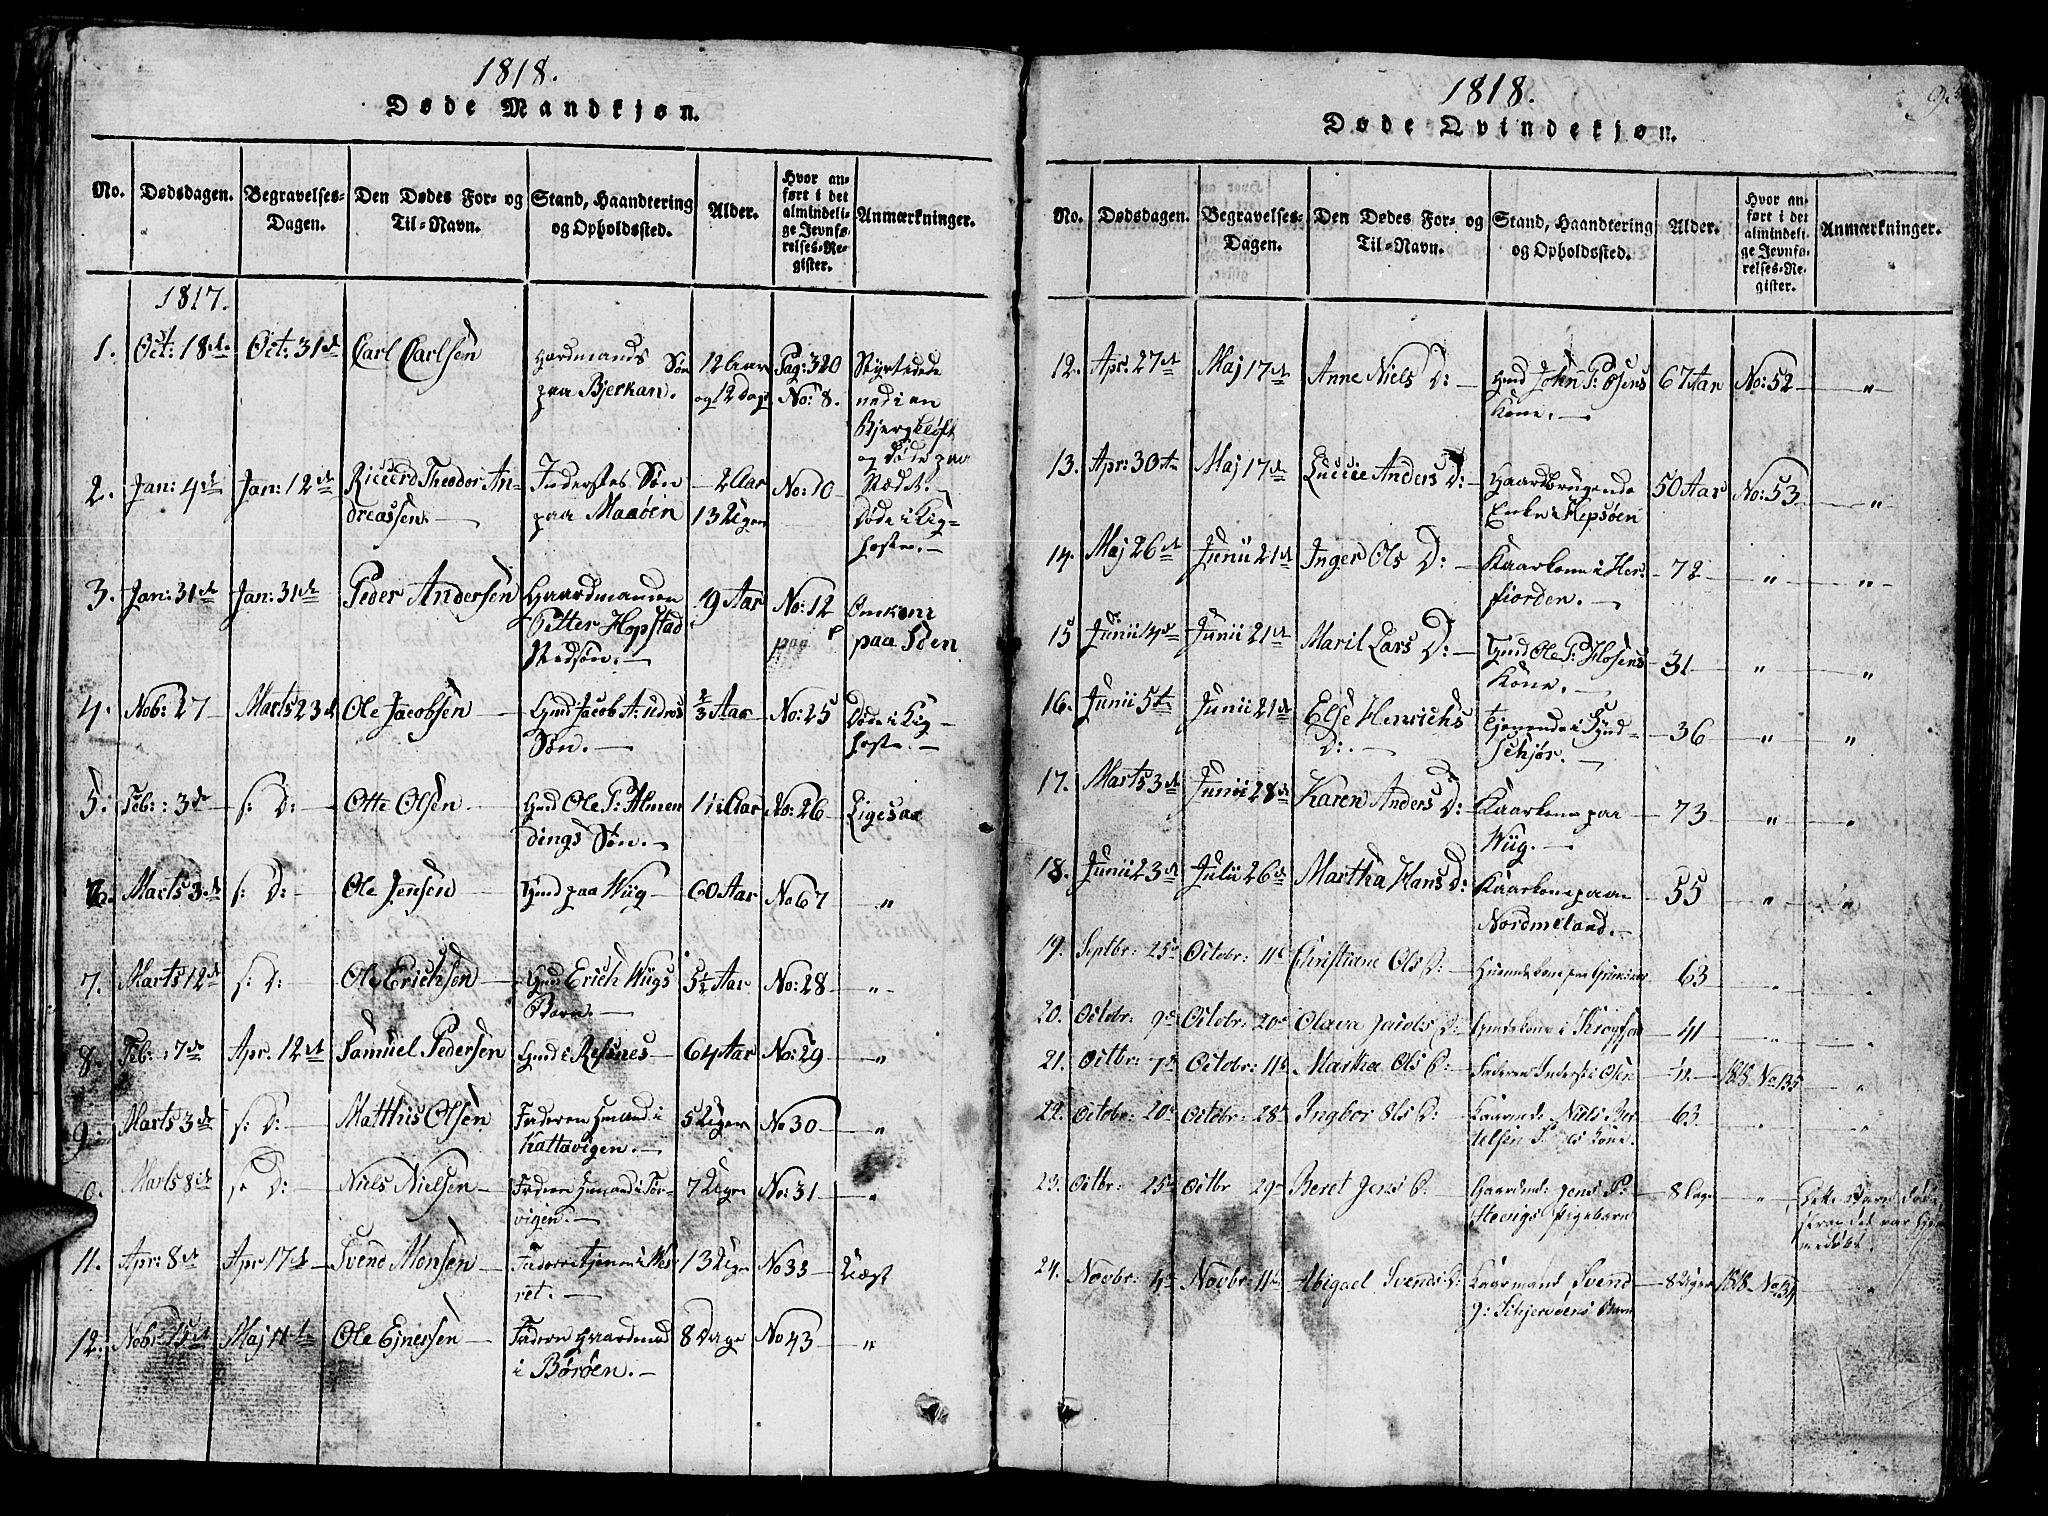 1818.
Døde Mandkjøn.
No.
Dødsdagen.
Begravelses-
Dagen.
Den Dødes For- og
Til-Navn.
Stand, Haandtering
og Opholdssted.
Alder.
Hvor an-
ført i det
almindeli-
ge Jevnfø-
relses-Re-
gister.
Anmærkninger.
1817.
1. Oct: 18de Oct: 31d Carl Carlsen
Søn
paa Bjerkan.
12 Aar
og 12 Dage
Pag: 320
No: 8.
Styrtede
ned i en
Bjergkløft
og døde paa
Stædet.
2. Jan: 4de Jan: 12te Riccerd Theodor An-
dreassen.
Inderstes Søn
paa Maaøen
2 Aar
13 Uger
No: 10
Døde i Kig-
hoste.
3. Jan: 31te Jan: 31te Peder Andersen
Gaardmanden
Petter Hopstad
Stedsøn.
19 Aar No: 12
Omkom
paa Søen
4. Nob: 27 Marts 23d Ole Jacobsen
Gmd Jacob Andres
Søn.
2/3 Aar No: 25
Døde i Kig-
hoste.
5. Feb: 3de s: D: Otte Olsen
Gmd Ole P: Almen
dings Søn.
1½ Aar No: 26 Ligesaa
6. Marts 3de s: D: Ole Jensen Gmd paa Wiig 60 Aar No 67 "
7. Marts 12te s: D: Ole Erichsen
Gmd Erich Wiigs
Barn.
5½ Aar No: 28 "
8. Feb: 17de Apr. 12te Samuel Pedersen Gmd i Ressnes 64 Aar No: 29 "
9. Marts 3de s: D: Matthis Olsen
Faderen Husmand i
Kattavigen.
5 Uger No 30 "
Marts 8de s: D: Niels Nielsen
Faderen Husmand i Tør-
vigen.
7 Uger No: 31 "
11. Apr: 8de Apr 17de Svend Monsen
Faderen tjener i Nes-
ret.
13 Uger No 33
12. Nobr 15de Maj 11te Ole Ejnersen
Faderen Gaardmd
i Børøen.
8 Dage No 43 "
1818.
Døde Qvindekjøn.
No.
Dødsdagen.
Begravelses-
Dagen.
Den Dødes For- og
Til-Navn.
Stand, Haandtering
og Opholdssted.
Alder.
Hvor an-
ført i det
almindeli-
ge Jevnfø-
relses-Re-
gister.
Anmærkninger.
12. Apr: 27de Maj 17de Anne Niels D:
Gmd John P: Osens
Kone.
67 Aar No: 52 "
13. Apr: 30te Maj 17de Luccie Anders D:
Gaardbrugende
Enke i Hepsøen
50 Aar No: 53 "
14. Maj 26de Junii 21de Inger Ols D:
Kaarkone i Her-
fiorden.
72 " "
15 Junii 4de Junii 21de Maril Lars D:
Gmd Ole P: Hosens
Kone.
31 " "
16. Junii 5te Junii 21de Else Henrichs
D:
Tjenende i Synd-
schjør.
36 " "
17. Marts 3de Junii 28de Karen Anders D:
Kaarkone paa
Wiig.
73 " "
18. Junii 23de Julii 26de Martha Hans D:
Kaarkone paa
Nordmeland.
55 " "
19. Septbr: 25de Octobr: 11te Christiane Ols D:
63 " "
20. Octobr: 9de Octobr: 20de Olava Jacobs D:
41 " "
21. Octbr: 7de Octobr: 11te Martha Ols D:
Faderen Inderst i Osen
1818 No 135 "
22. Octobr: 20de Octobr: 28de Ingbor Ols D:
Kaarmd: Niels Ber-
telsen Kone.
63 " "
23. Octbr: 25de Octbr 29de Beret Jens D:
Gaardmd: Jens P:
Hevigs Pigebarn
8 Dage "
Dette Barn døde
førend det var hjem-
medøbt.
24. Novbr: 4de Novbr: 11te Abigael Svends D:
Kaarmand Svend
J: Schjervøens Barn
8 Uger 1818 No 134 "